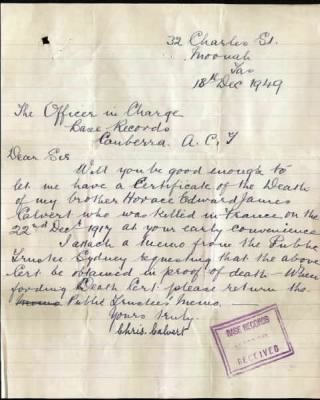 32 Charles St.
Moonah
Tas
18th Dec 1949
The Officer in Charge
Base Records
Canberra. A.C.T
Dear Sir
Will you be good enough to
let me have a Certificate of the Death
of my brother Horace Edward James
Calvert who was killed in France on the
22nd Dec 1917 at your early convenience
I attach a memo from the Public
Trustee Sydney requesting that the above
Cert be obtained in proof of death - When
fording Death Cert please return the
Public Trustee's Memo.
Yours truly.
Chris. Calvert
BASE RECORDS
RECEIVED